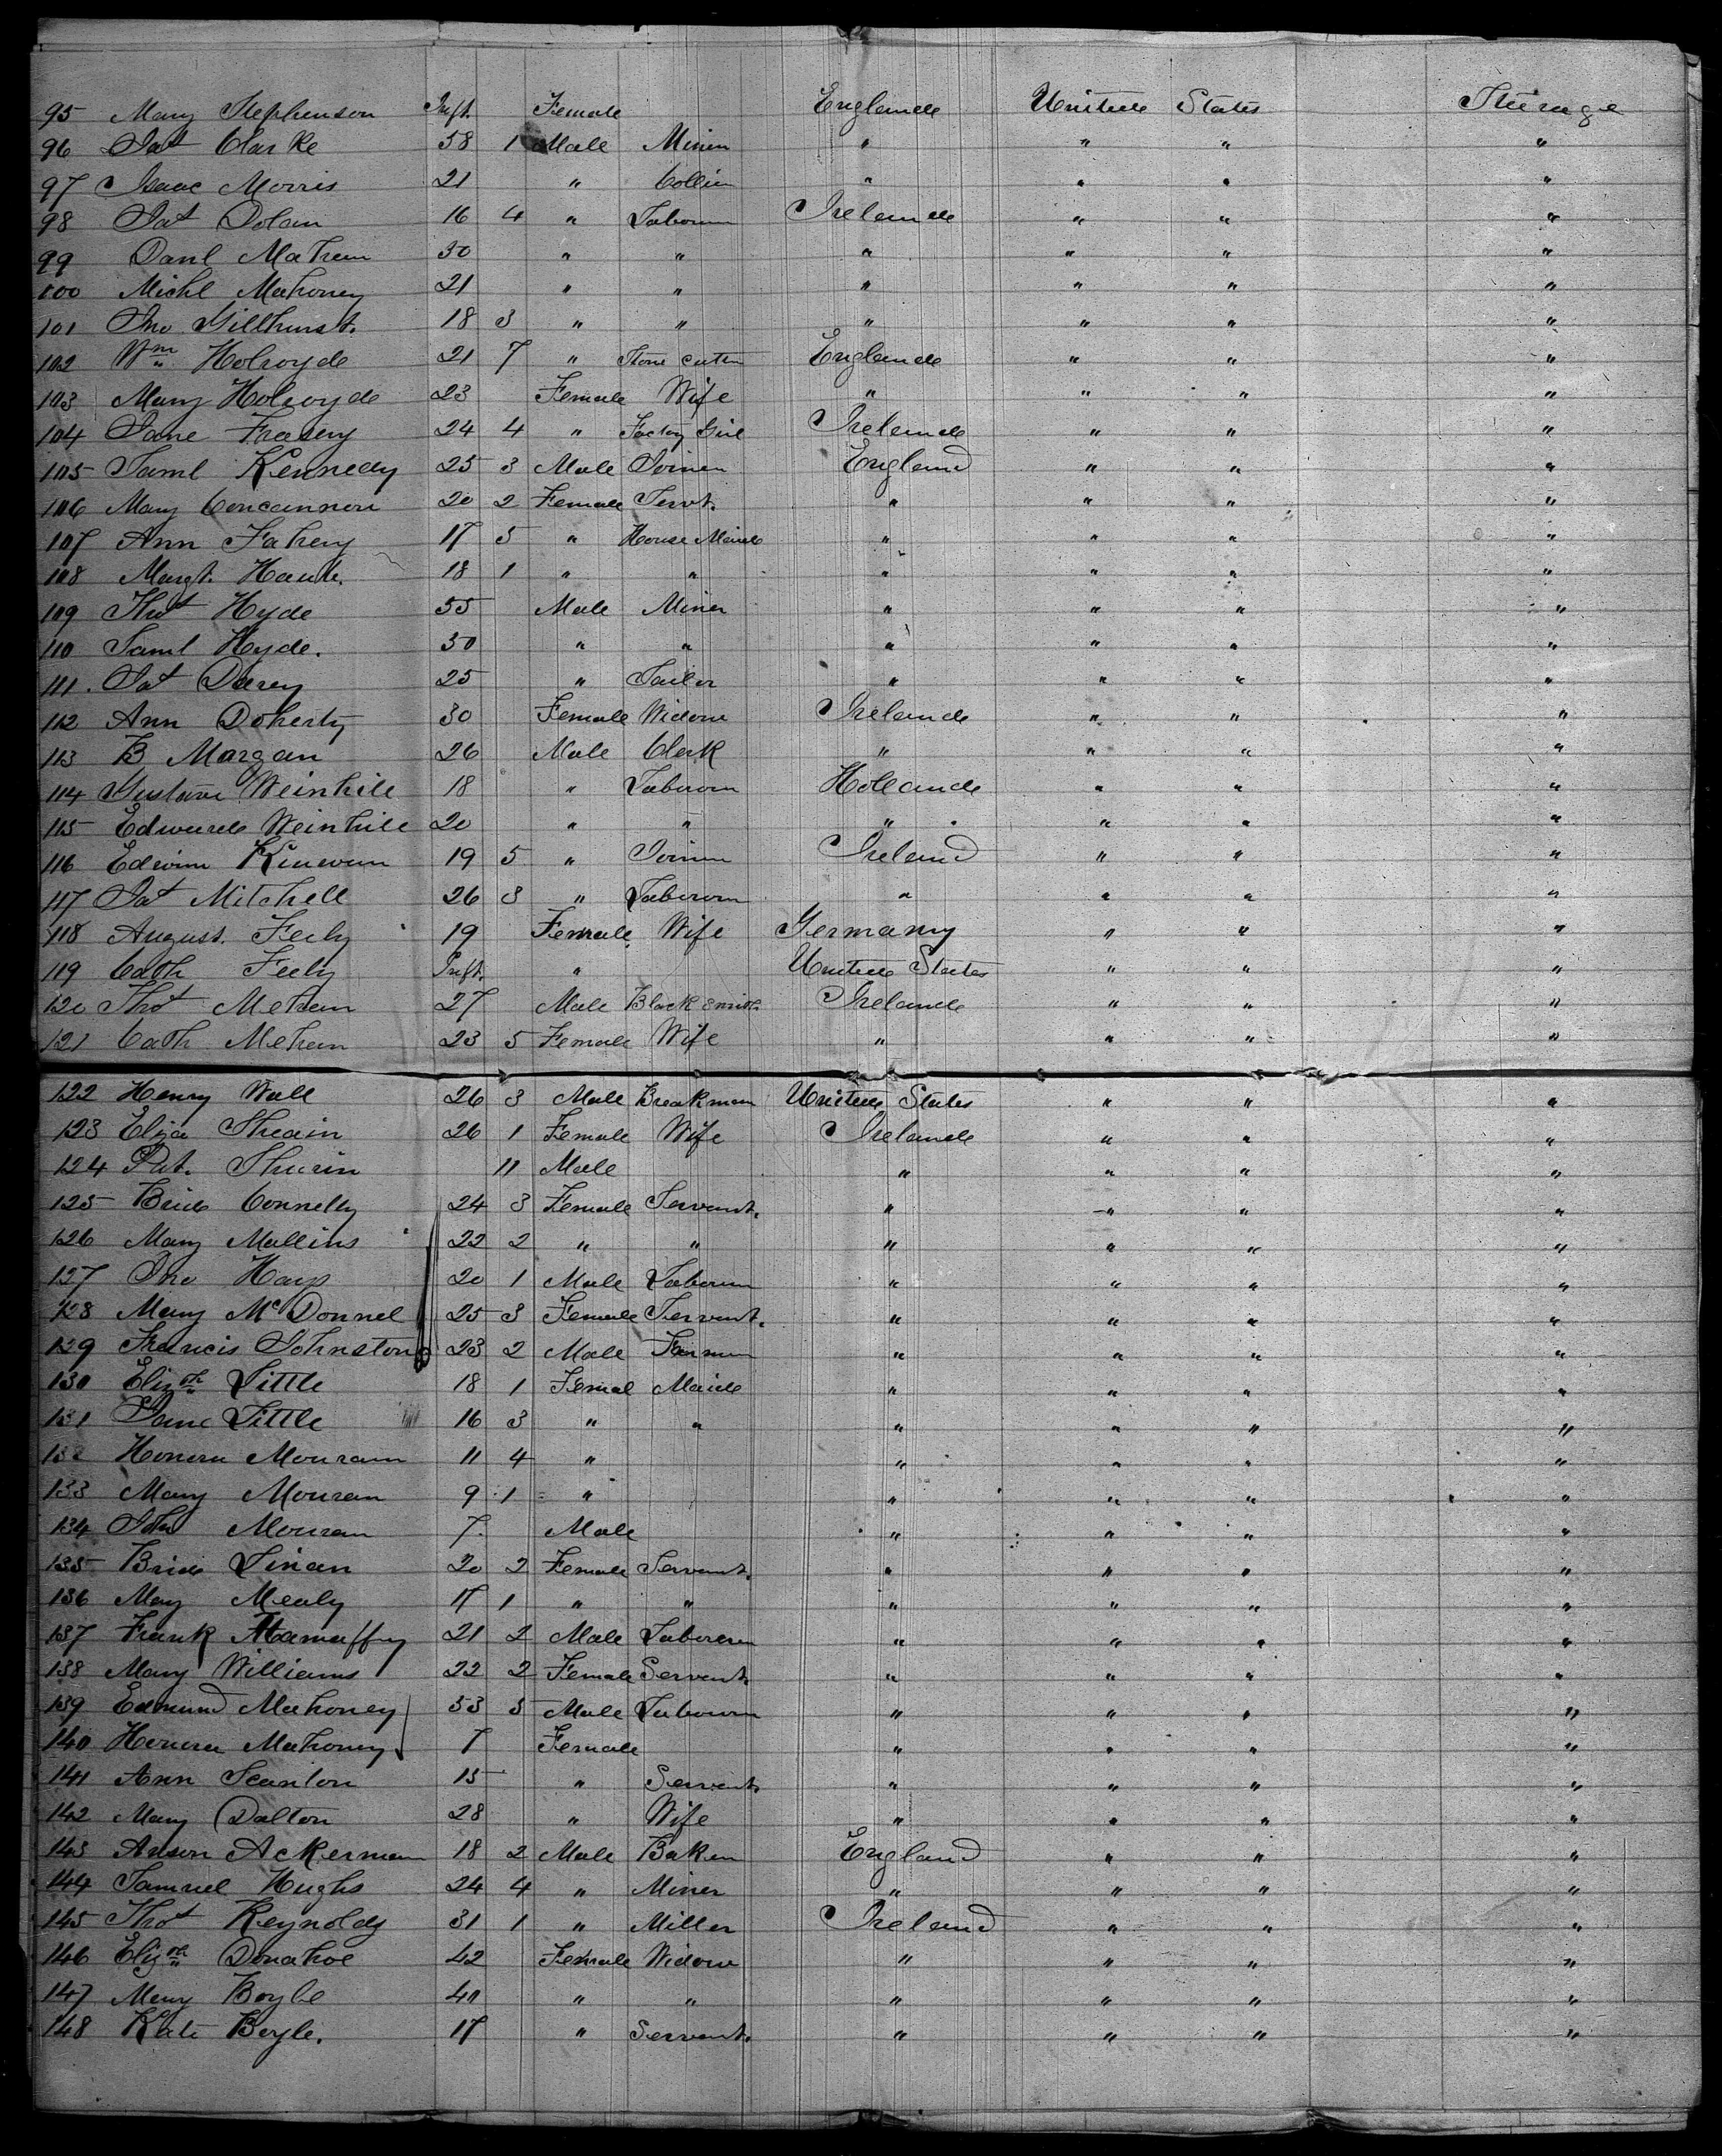 95 Mary Stephenson Inft. Female England United States Steerage
96 Pat Clarke 58 1 Male Miner " " " "
97 Isaac Morris 21 " Collier " " " "
98 Pat Dolan 16 4 " Laborer Ireland " " "
99 Danl Mahern 30 " " " " " "
100 Michl Mahoney 21 " " " " " "
101 Jno Gillhurst. 18 3 " " " " " "
102 Wm Holroyde 21 7 " Stone cutter England " " "
103 Mary Holroyde 23 Female Wife " " " "
104 Jane 24 4 " Factory Girl Ireland " " "
105 Saml Kennedy 25 3 Male Joiner England " " "
106 Mary Concannon 20 2 Female Servt. " " " "
107 Ann Fahey 17 5 " House Maid " " " "
108 Margt. 18 1 " " " " " "
109 Thos Hyde 55 Male Miner " " " "
110 Saml Hyde. 30 " " " " " "
111. Pat Darcy 25 " Tailor " " " "
112 Ann Doherty 30 Female Widow Ireland " " "
113 B Margan 26 Male Clerk " " " "
114 Gustave Weinhile 18 " Laborer Holland " " "
115 Edward Weinhile 20 " " " " " "
116 Edwin Kirwan 19 5 " Joiner Ireland " " "
117 Pat Mitchell 26 3 " Laborer " " " "
118 August. Feely 19 Female Wife Germany " " "
119 Cath Feely Inft. " United States " " "
120 Thos Mehan 27 Male Black smith Ireland " " "
121 Cath Mehan 23 5 Female Wife " " " "
122 Henry Wall 26 3 Male Breakman United States " " "
123 Eliza 26 1 Female Wife Ireland " " "
124 Pat. 11 Male " " " "
125 Brid Connelly 24 3 Female Servant. " " " "
126 Mary Mullins 22 2 " " " " " "
127 Jno Hays 20 1 Male Laborer " " " "
128 Mary McDonnel 25 3 Female Servant. " " " "
129 Francis Johnston 23 2 Male Farmer " " " "
130 Elizth Little 18 1 Femal Maid " " " "
131 Jane Little 16 3 " " " " " "
132 Honora Mouran 11 4 " " " " "
133 Mary Mouran 9 1 " " " " "
134 Mouran 7 Male " " " "
135 Brid Linan 20 2 Female Servant. " " " "
136 Mary Mealy 17 1 " " " " " "
137 Frank 21 2 Male Laborer " " " "
138 Mary Williams 22 2 Female Servant. " " " "
139 Edmund Mahoney 53 5 Male Laborer " " " "
140 Honora Mahoney 7 Female " " " "
141 Ann Scanlon 15 " Servant. " " " "
142 Mary Dalton 28 " Wife " " " "
143 Anson Ackerman 18 2 Male Baker England " " "
144 Samuel Hughs 24 4 " Miner " " " "
145 Thos Reynolds 31 1 " Miller Ireland " " "
146 Elizth Donahoe 42 Female Widow " " " "
147 Mary Boyle 40 " " " " " "
148 Kate Boyle. 17 " Servant. " " " "